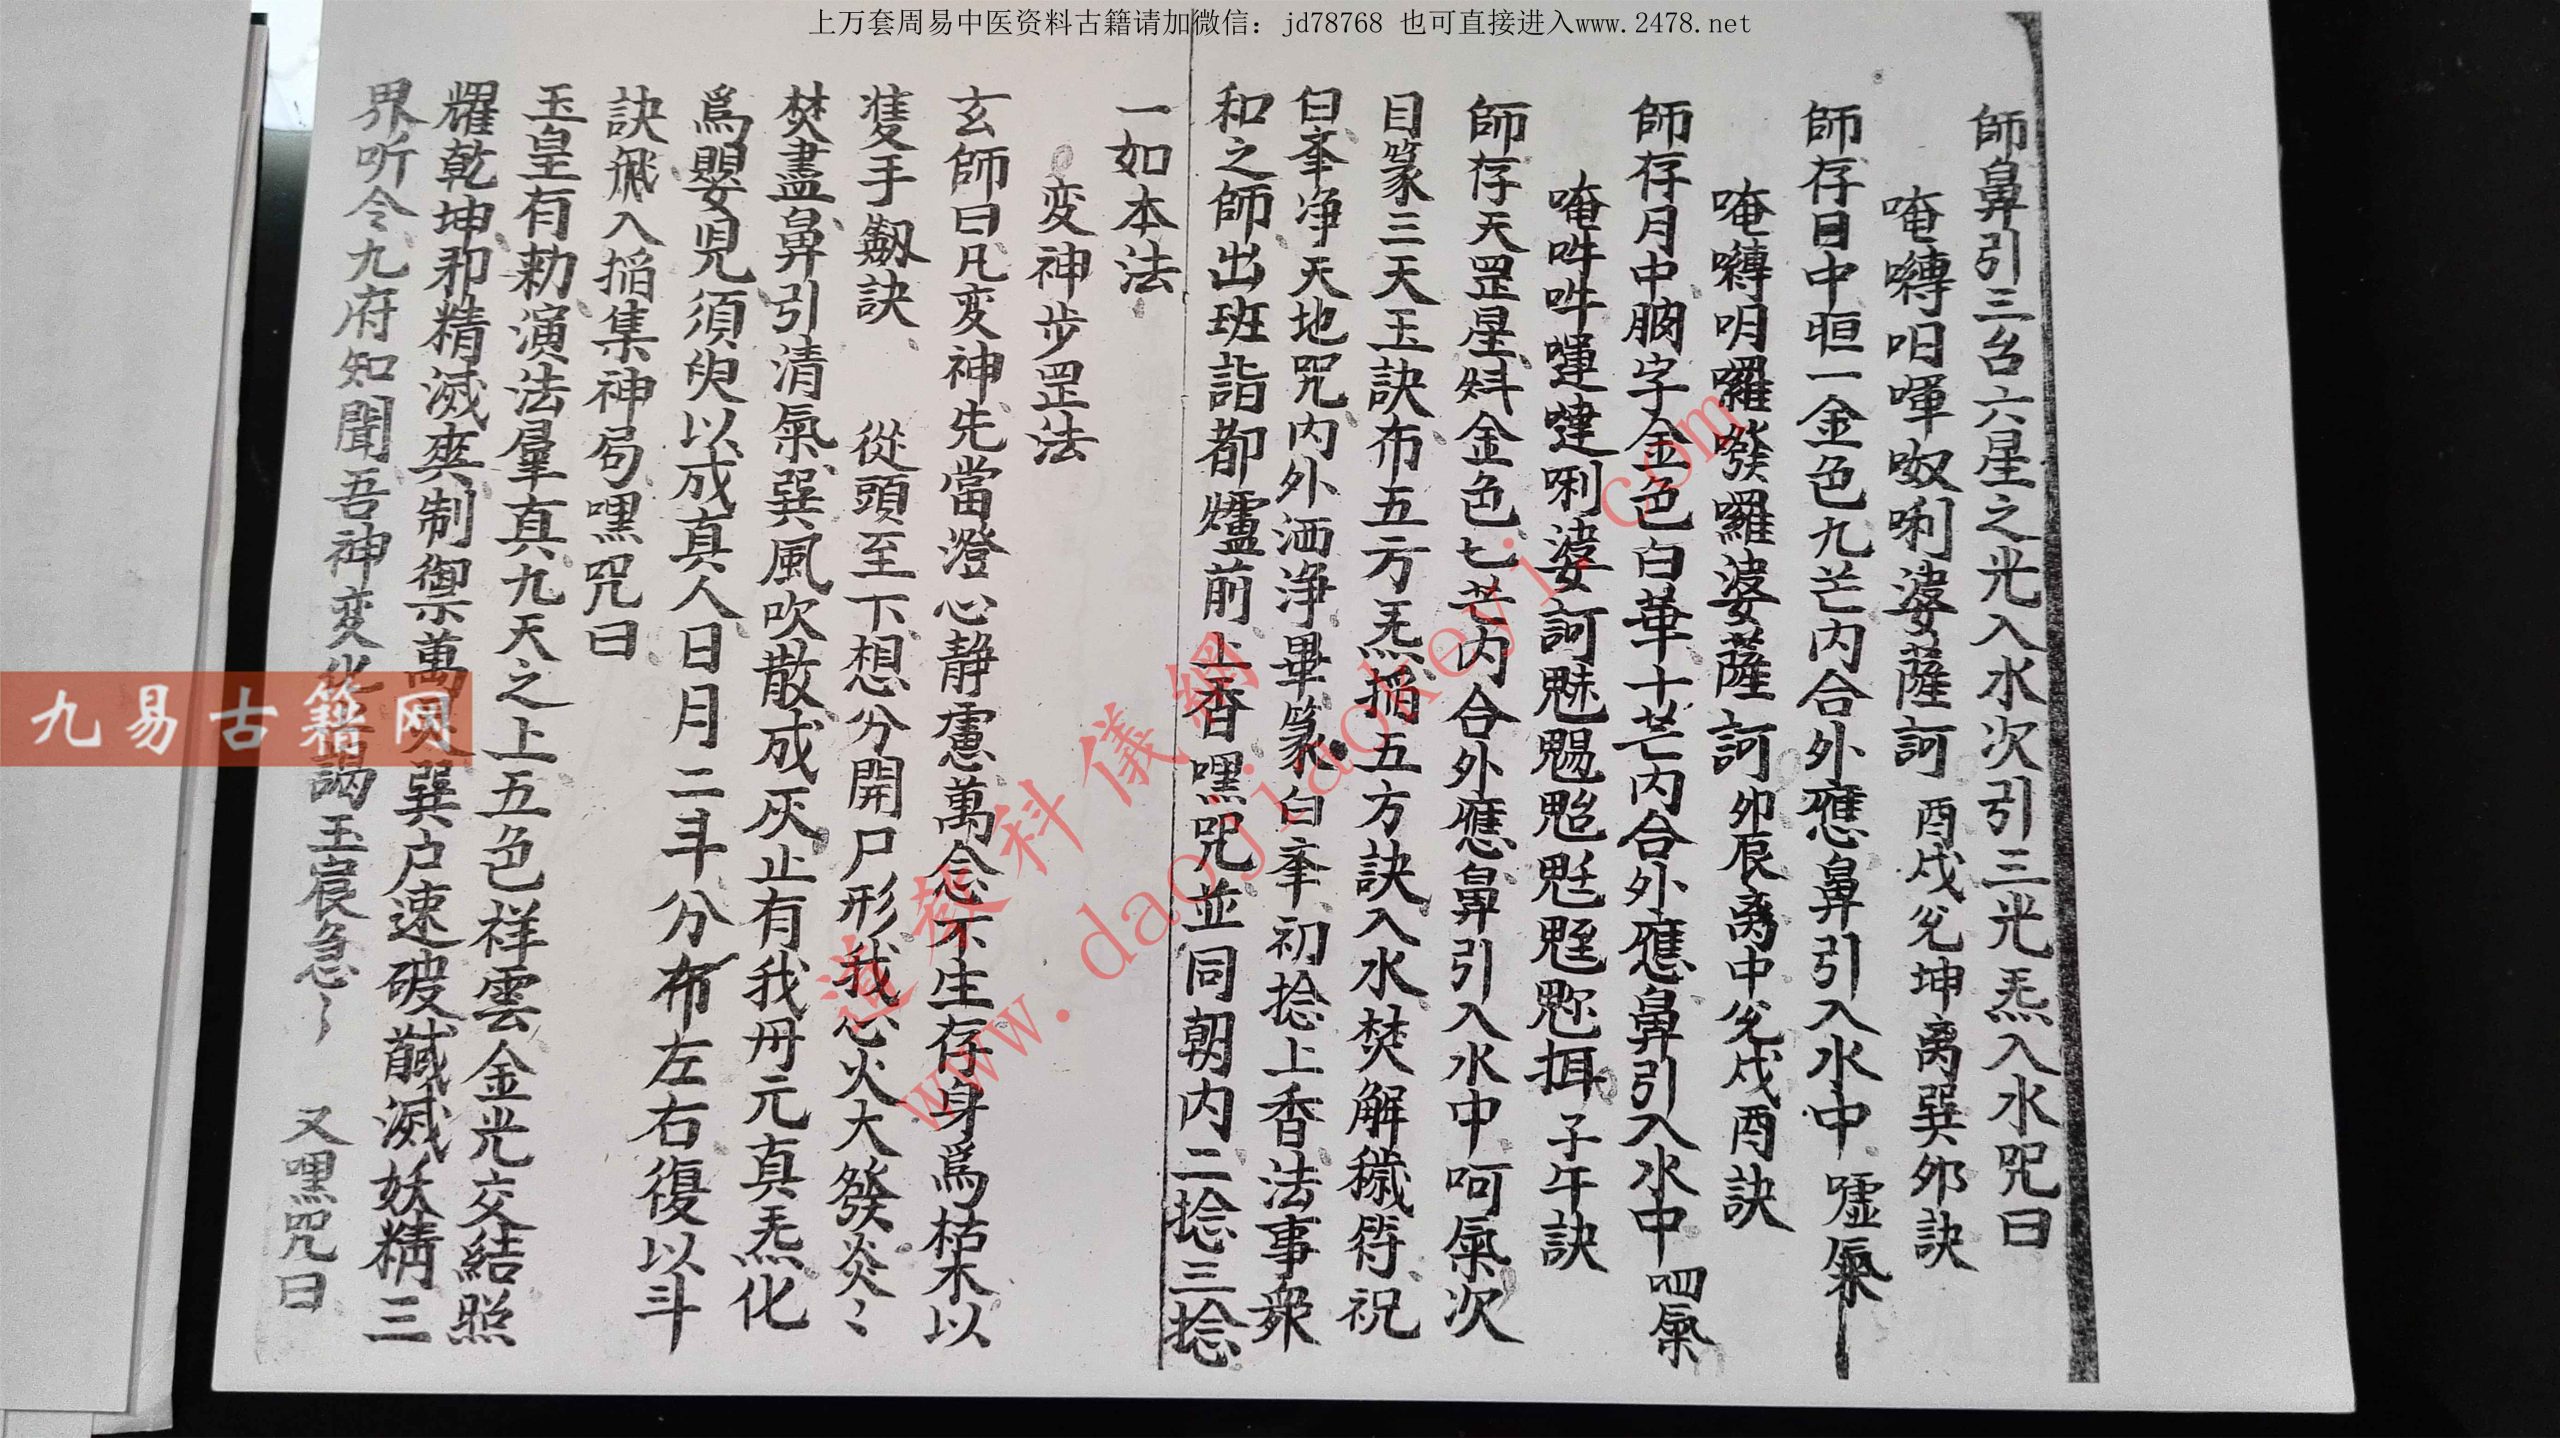 上万套周易中医资料古籍请加微信：jd78768 也可直接进入www.2478.net
師鼻引三台六星之光入水次引三光炁入水咒曰
唵囀呬㖮呶唎婆薩訶 酉戌兊坤离巽夘訣
師存日中晅一金色九芒内合外應鼻引入水中 嘘氣
唵囀明囉㗶囉婆薩訶 夘辰离中兊戌酉訣
師存月中䏚字金色白華十芒内合外應鼻引入水中 呬氣
唵吽吽唎婆訶魁 子午訣
師存天罡星斜金色七芒内合外應鼻引入水中呵氣次
目篆三天玉訣布五方炁搯五方訣入水焚解穢符祝
曰奉净天地咒内外洒净畢篆白奉初捻上香法事衆
和之師出班詣都爐前上香嘿咒並同朝内二捻三捻
一如本法
変神步罡法
玄師曰凡変神先當澄心静慮萬念不生存身爲枯木以
隻手劒訣 從頭至下想分開尸形我心火大發炎〻
焚盡鼻引清氣巽風吹散成灰止有我毋元真炁化
爲嬰児須臾以成真人日月二斗分布左右復以斗
訣飛入搯集神局嘿咒曰
玉皇有勑演法羣真九天之上五色祥雲金光交結照
耀乾坤邪精滅爽制禦萬巽户速破馘滅妖精三
界听令九府知聞吾神変謁玉宸急〻 又嘿咒曰
九易古籍网
道教科儀網
www.daojiaokeyi.com